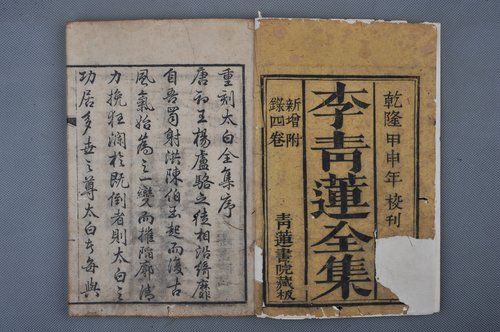 乾隆甲申年 校刊
李青蓮全集
新增附
錄四卷
青蓮書院藏板
重刻太白全集序
唐初王楊盧駱之徒相沿綺靡
自吾蜀射洪陳伯玉起而復古
風氣始為之一變而摧陷廓清
力挽狂瀾於既倒者則太白之
功居多世之尊太白者每與